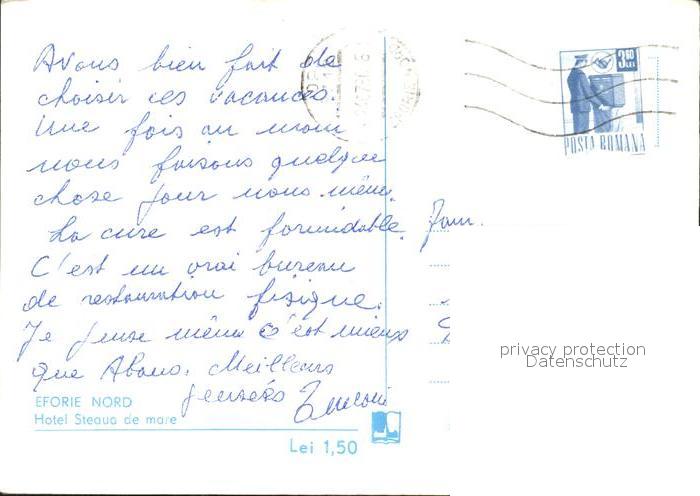 Avons bien fait de
choisir ces vacances.
Une fois au moin
nous faisons quelque
chose pour nous même.
La cure est formidable.
C'est un vrai bureau
de restauration fisique.
Je pense même c'est mieux
que Abano. Meilleurs
pensées
Fam.
EFORIE NORD
Hotel Steaua de mare
Lei 1,50
3,60
LEI
POSTA ROMANA
privacy protection
Datenschutz